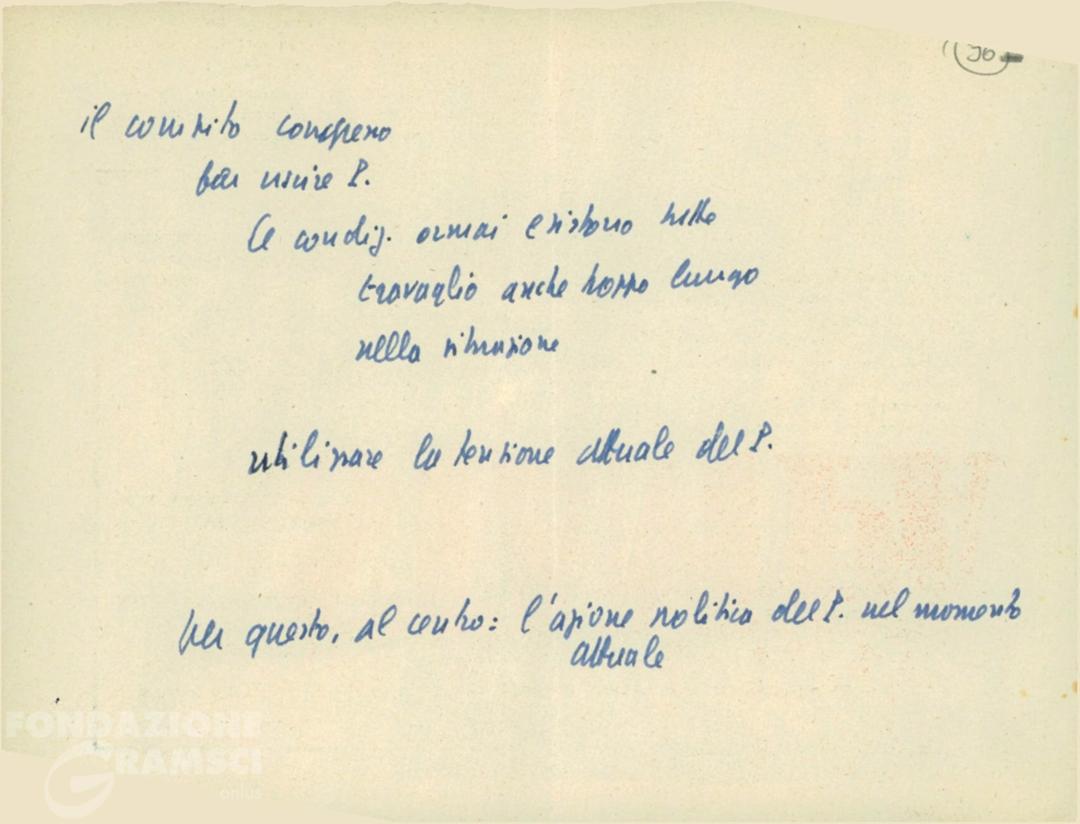 90
il compito congresso
far uscire P.
le condiz. ormai esistono nella
travaglio anche troppo lungo
nella situazione
utilizzare la tensione attuale del P.
per questo, al centro: l'azione politica del P. nel momento
attuale
FONDAZIONE
GRAMSCI
onlus